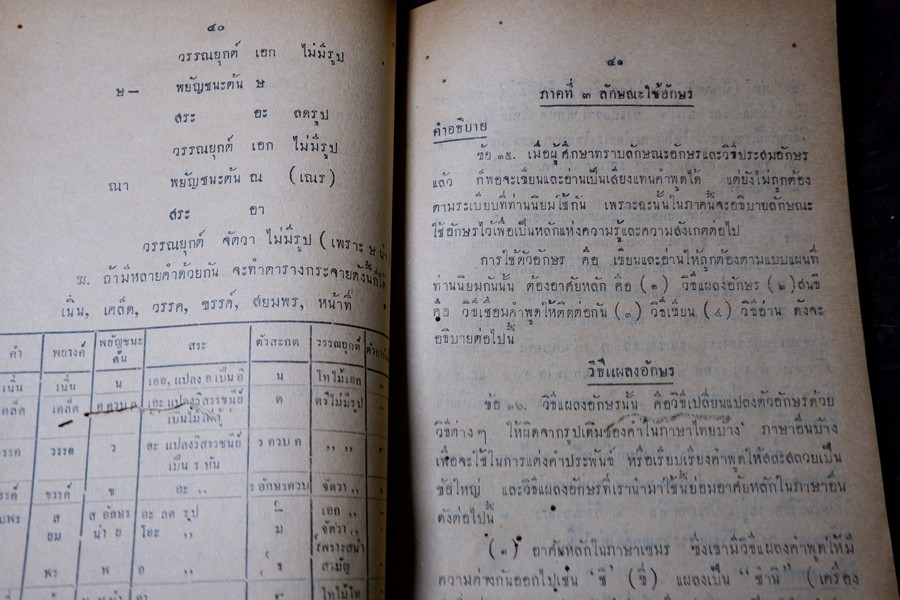 ๔๐
วรรณยุกต์ เอก ไม่มีรูป
ษ— พยัญชนะต้น ษ
สระ อะ ลดรูป
วรรณยุกต์ เอก ไม่มีรูป
ณา พยัญชนะต้น ณ (เณร)
สระ อา
วรรณยุกต์ จัตวา ไม่มีรูป (เพราะ ษ นำ
ฆ. ถ้ามีหลายคำด้วยกัน จะทำตารางกระจายดังนี้ก็ได้
เนิ่น, เคล็ด, วรรค, ขรรค์, สยมพร, หน้าที่
คำ พยางค์ พยัญชนะต้น สระ ตัวสะกด วรรณยุกต์
เนิ่น เนิ่น น เออ, แปลง อ เป็น อิ น โทไม้เอก
เคล็ด เคล็ด ค ควบ ล เอะ แปลงวิสรรชนีย์ ด ตรีไม่มีรูป
เป็นไม้ไต่คู้
วรรค วรรค ว อะ แปลงวิสรรชนีย์ ร ควบ ค
เป็น ร หัน
ขรรค์ ขรรค์ ข อะ ,, ร อักษรควบ จัตวา ,,
ส ส อักษร อะ ลด รูป — เอก ,,
ยม นำ ย โอะ ,, ม จัตวา ,,
(เพราะสนำ
พร พ อ ,, ร สามัญ
โทไม้โท
๔๑
ภาคที่ ๓ ลักษณะใช้อักษร
คำอธิบาย
ข้อ ๓๕. เมื่อผู้ศึกษาทราบลักษณะอักษรและวิธีประสมอักษร
แล้ว ก็พอจะเขียนและอ่านเป็นเสียงแทนคำพูดได้ แต่ยังไม่ถูกต้อง
ตามระเบียบที่ท่านนิยมใช้กัน เพราะฉะนั้นในภาคนี้จะอธิบายลักษณะ
ใช้อักษรไว้เพื่อเป็นหลักแห่งความรู้และความสังเกตต่อไป
การใช้ตัวอักษร คือ เขียนและอ่านให้ถูกต้องตามแบบแผนที่
ท่านนิยมกันนั้น ต้องอาศัยหลัก คือ (๑) วิธีแผลงอักษร (๒) สนธิ
คือ วิธีเชื่อมคำพูดให้ติดต่อกัน (๓) วิธีเขียน (๔) วิธีอ่าน ดังจะ
อธิบายต่อไปนี้
วิธีแผลงอักษร
ข้อ ๓๖. วิธีแผลงอักษรนั้น คือวิธีเปลี่ยนแปลงตัวอักษรด้วย
วิธีต่างๆ ให้ผิดจากรูปเดิมของคำในภาษาไทยบ้าง ภาษาอื่นบ้าง
เพื่อจะใช้ในการแต่งคำประพันธ์ หรือเรียบเรียงคำพูดให้สละสลวยเป็น
ข้อใหญ่ และวิธีแผลงอักษรที่เรานำมาใช้นี้ย่อมอาศัยหลักในภาษาอื่น
ดังต่อไปนี้
(๑) อาศัยหลักในภาษาเขมร ซึ่งเขามีวิธีแผลงคำพูดให้มี
ความต่างกันออกไปเช่น 'ชี' (ขี่) แผลงเป็น "ชำนิ" (เครื่อง